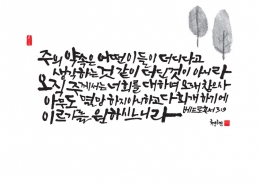 주의 약속은 어떤이들이 더디다고
생각하는 것 같이 더딘것이 아니라
오직 주께서는 너희를 대하여 오래 참으사
아무도 멸망하지아니하고 다 회개하기에
이르기를 원하시느니라
베드로후서 3:9